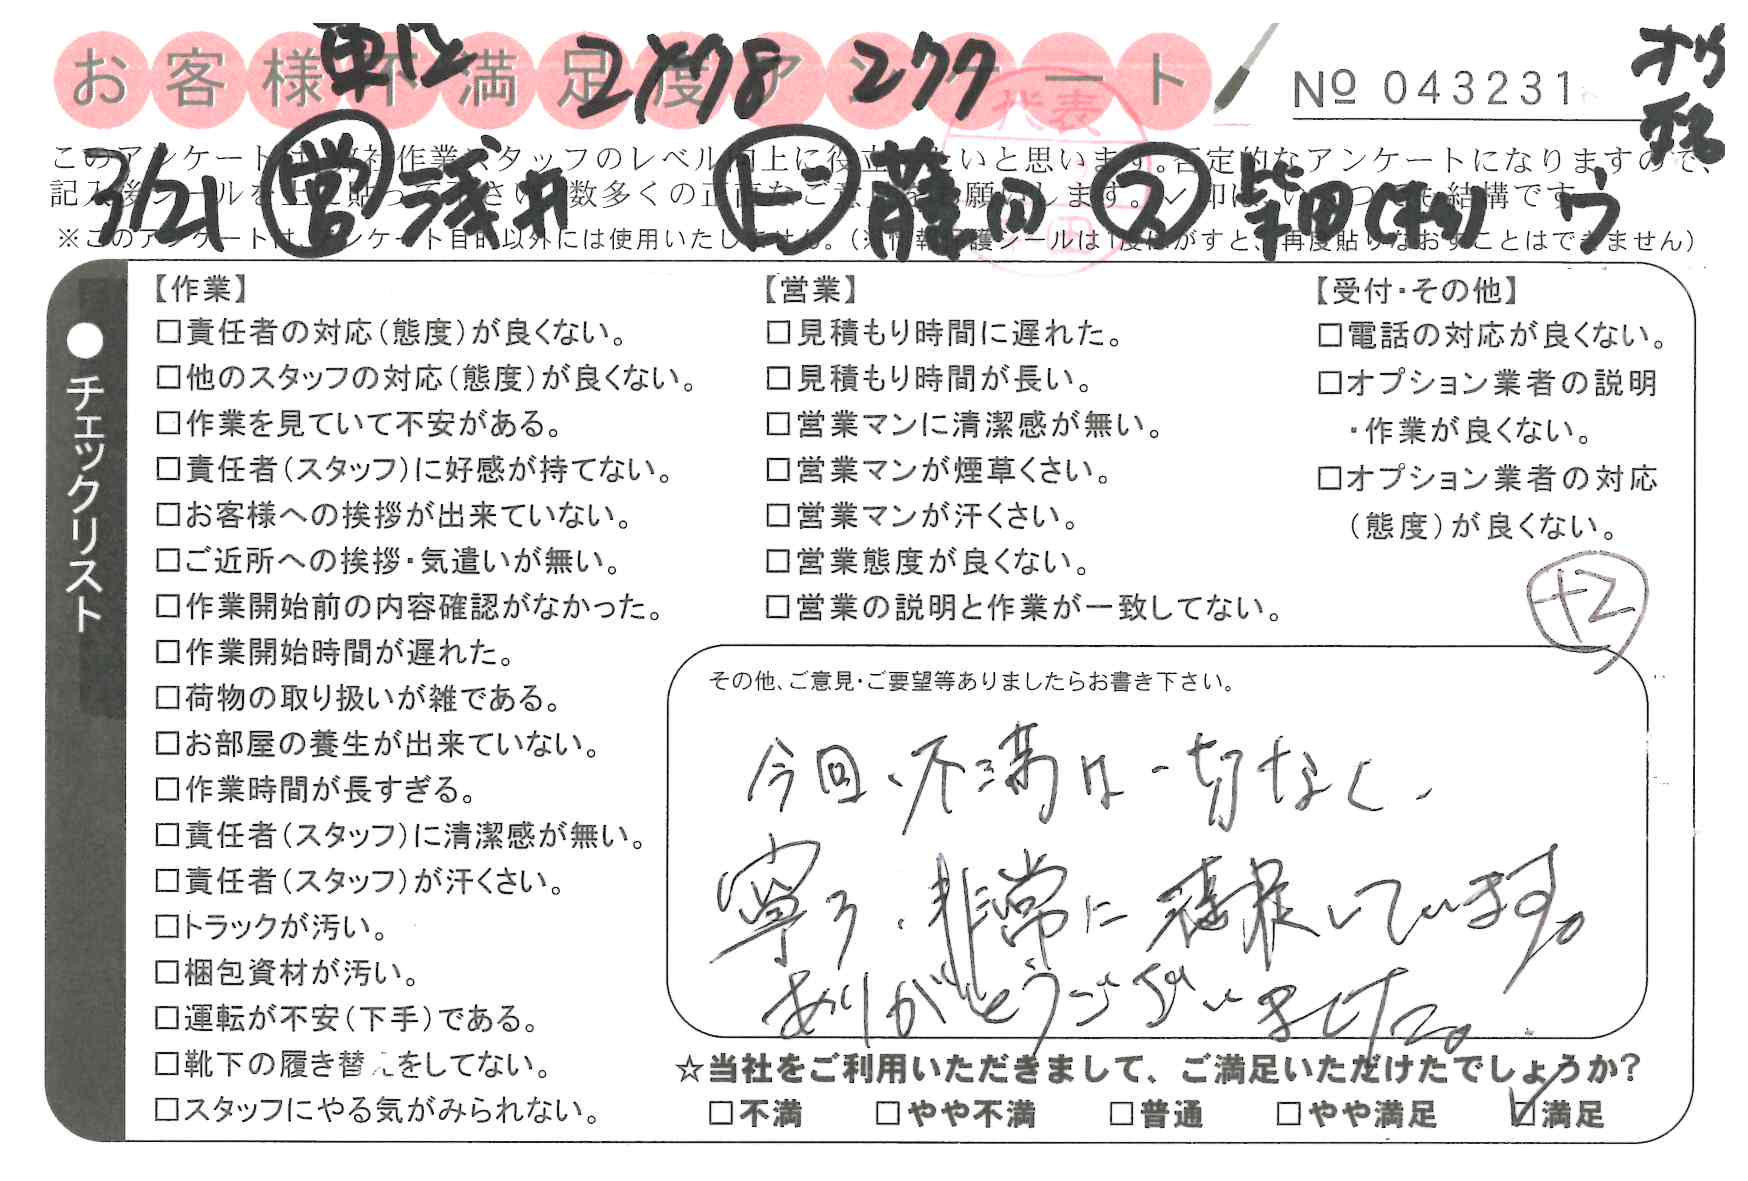 お客様不満足度アンケート
No 043231
東区 277
このアンケートは、弊社作業スタッフのレベル向上に役立てたいと思います。否定的なアンケートになりますので、
記入後シールを上に貼って下さい。数多くの正直なご意見をお願いします。レ印はいくつでも結構です。
3/21 営 浅井 ト 藤田 ス 柴田
※このアンケートは、アンケート目的以外には使用いたしません。(※情報保護シールは1度はがすと、再度貼りなおすことはできません)
代表
●チェックリスト
【作業】
□責任者の対応(態度)が良くない。
□他のスタッフの対応(態度)が良くない。
□作業を見ていて不安がある。
□責任者(スタッフ)に好感が持てない。
□お客様への挨拶が出来ていない。
□ご近所への挨拶・気遣いが無い。
□作業開始前の内容確認がなかった。
□作業開始時間が遅れた。
□荷物の取り扱いが雑である。
□お部屋の養生が出来ていない。
□作業時間が長すぎる。
□責任者(スタッフ)に清潔感が無い。
□責任者(スタッフ)が汗くさい。
□トラックが汚い。
□梱包資材が汚い。
□運転が不安(下手)である。
□靴下の履き替えをしてない。
□スタッフにやる気がみられない。
【営業】
□見積もり時間に遅れた。
□見積もり時間が長い。
□営業マンに清潔感が無い。
□営業マンが煙草くさい。
□営業マンが汗くさい。
□営業態度が良くない。
□営業の説明と作業が一致してない。
【受付・その他】
□電話の対応が良くない。
□オプション業者の説明
・作業が良くない。
□オプション業者の対応
(態度)が良くない。
+2
その他、ご意見・ご要望等ありましたらお書き下さい。
今回、不満は一切なく、
寧ろ、非常に感謝しています。
ありがとうございました。
☆当社をご利用いただきまして、ご満足いただけたでしょうか?
□不満 □やや不満 □普通 □やや満足 ☑満足